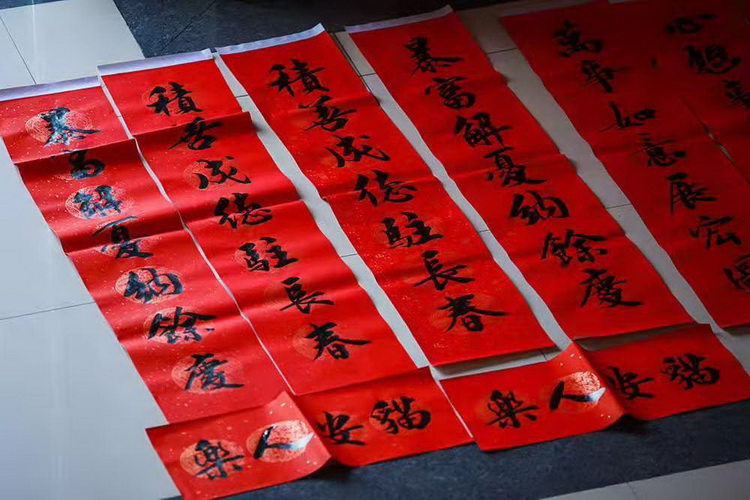 心想事
萬事如意展宏圖
暴富解憂納餘慶
積善成德駐長春
積善成德駐長春
暴富解憂納餘慶
貓安人樂
貓安人樂